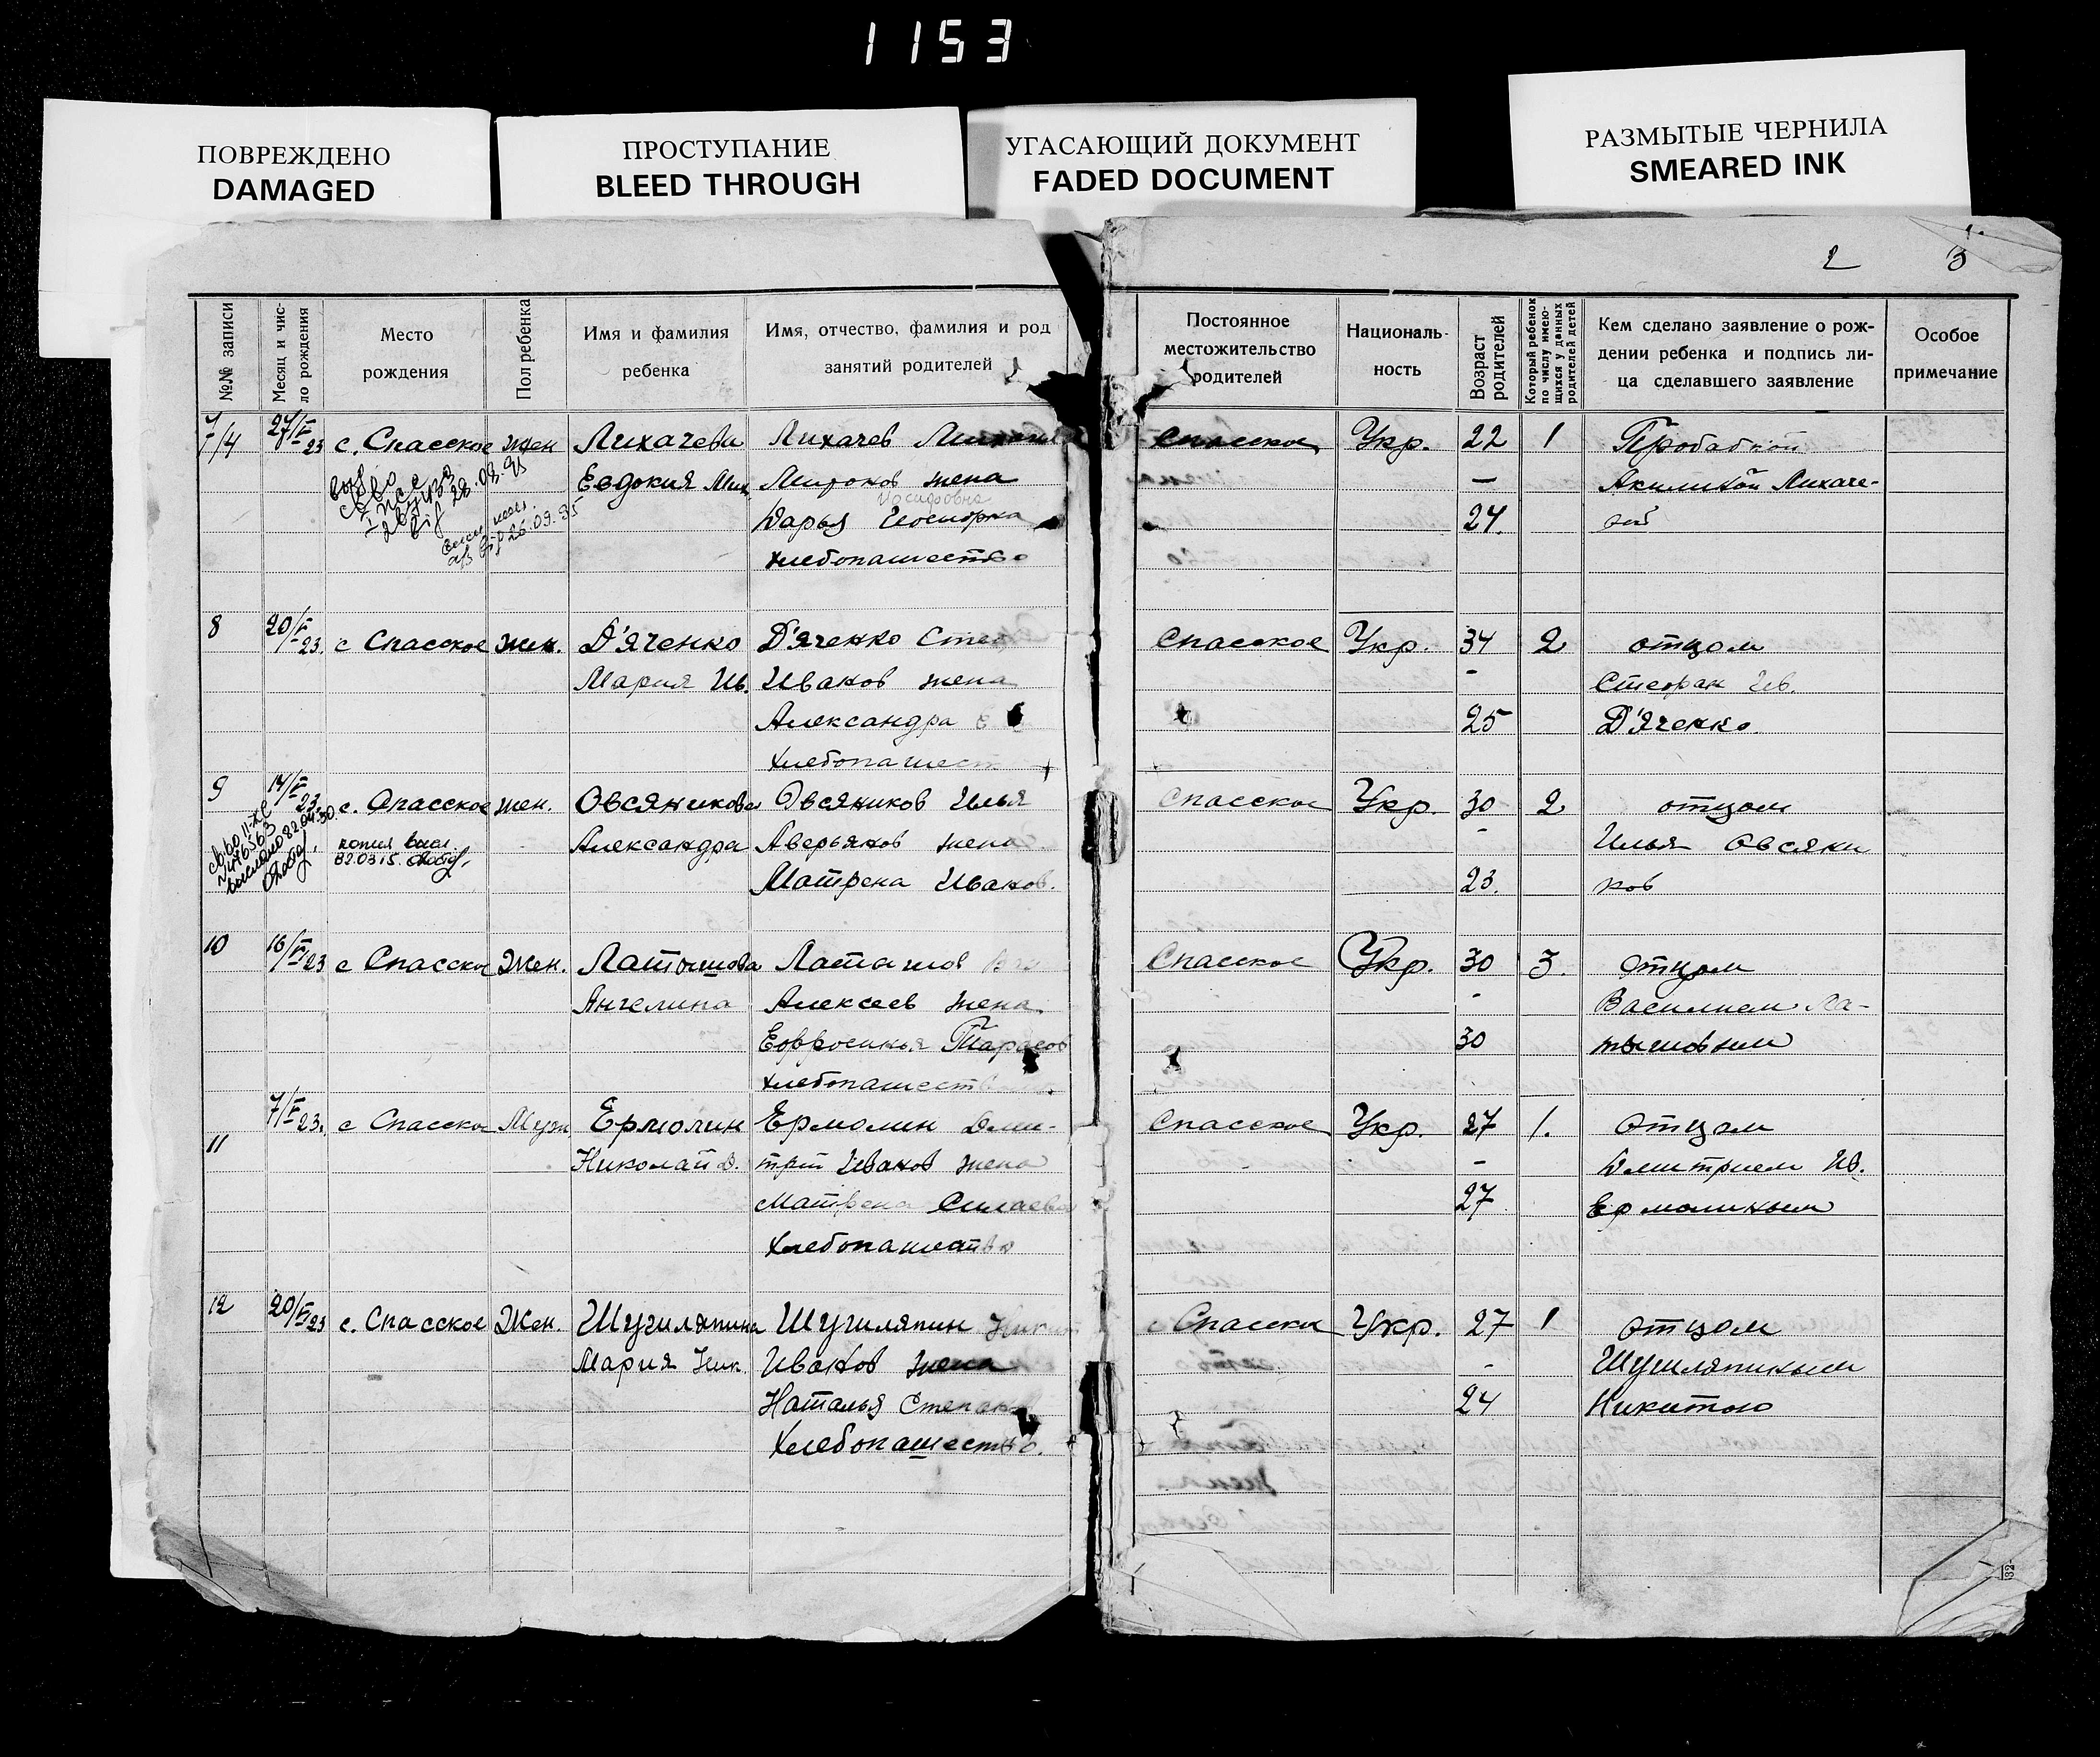 1153
ПОВРЕЖДЕНО
DAMAGED
ПРОСТУПАНИЕ
BLEED THROUGH
УГАСАЮЩИЙ ДОКУМЕНТ
FADED DOCUMENT
РАЗМЫТЫЕ ЧЕРНИЛА
SMEARED INK
2 3
№№ записи
Месяц и чис-
ло рождения
Место
рождения
Пол ребенка
Имя и фамилия
ребенка
Имя, отчество, фамилия и род
занятий родителей
Постоянное
местожительство
родителей
Националь-
ность
Возраст
родителей
Который ребенок
по числу имею-
щихся у данных
родителей детей
Кем сделано заявление о рож-
дении ребенка и подпись ли-
ца сделавшего заявление
Особое
примечание
27/V 23 с. Спасское жен Лихачева Лихачев Спасское Укр. 22 1
Евдокия Мих Миронов жена — Лихаче-
Иосифовна
Дарья 24. вой
хлебопашество
28.08.
26.09.95
8 20/V 23. с Спасское жен. Д'яченко Д'яченко Спасское Укр. 34 2 отцом
Мария Ив. Иванов жена - Стефан Ив.
Александра 25 Д'яченко.
хлебопашест
9 14/V 23. с. Спасское жен. Овсяникова Овсяников Илья Спасское Укр. 30 2 отцом
копия высл. Александра Аверьянов жена - Илья Овсяни
82.03.15. Матрена Иванов. 23. ков
10 16/V 23 с Спасское Жен. Латышова Латышов Спасское Укр. 30 3. отцом
Ангелина Алексеев жена - Василием Ла-
Ефросинья Тарасов 30 тышовым
хлебопашеств
7/V 23. с Спасское Муж Ермолин Ермолин Дми- Спасское Укр. 27 1. отцом
11 Николай Д. трий Иванов жена - Дмитрием Ив.
Матрена Силаева 27 Ермолиным
хлебопашество
12 20/V 23 с. Спасское Жен. Шугиляпина Шугиляпин с Спасское Укр. 27 1 отцом
Мария Ник. Иванов жена - Шугиляпиным
Наталья Степано 24 Никитою
Хлебопашество.